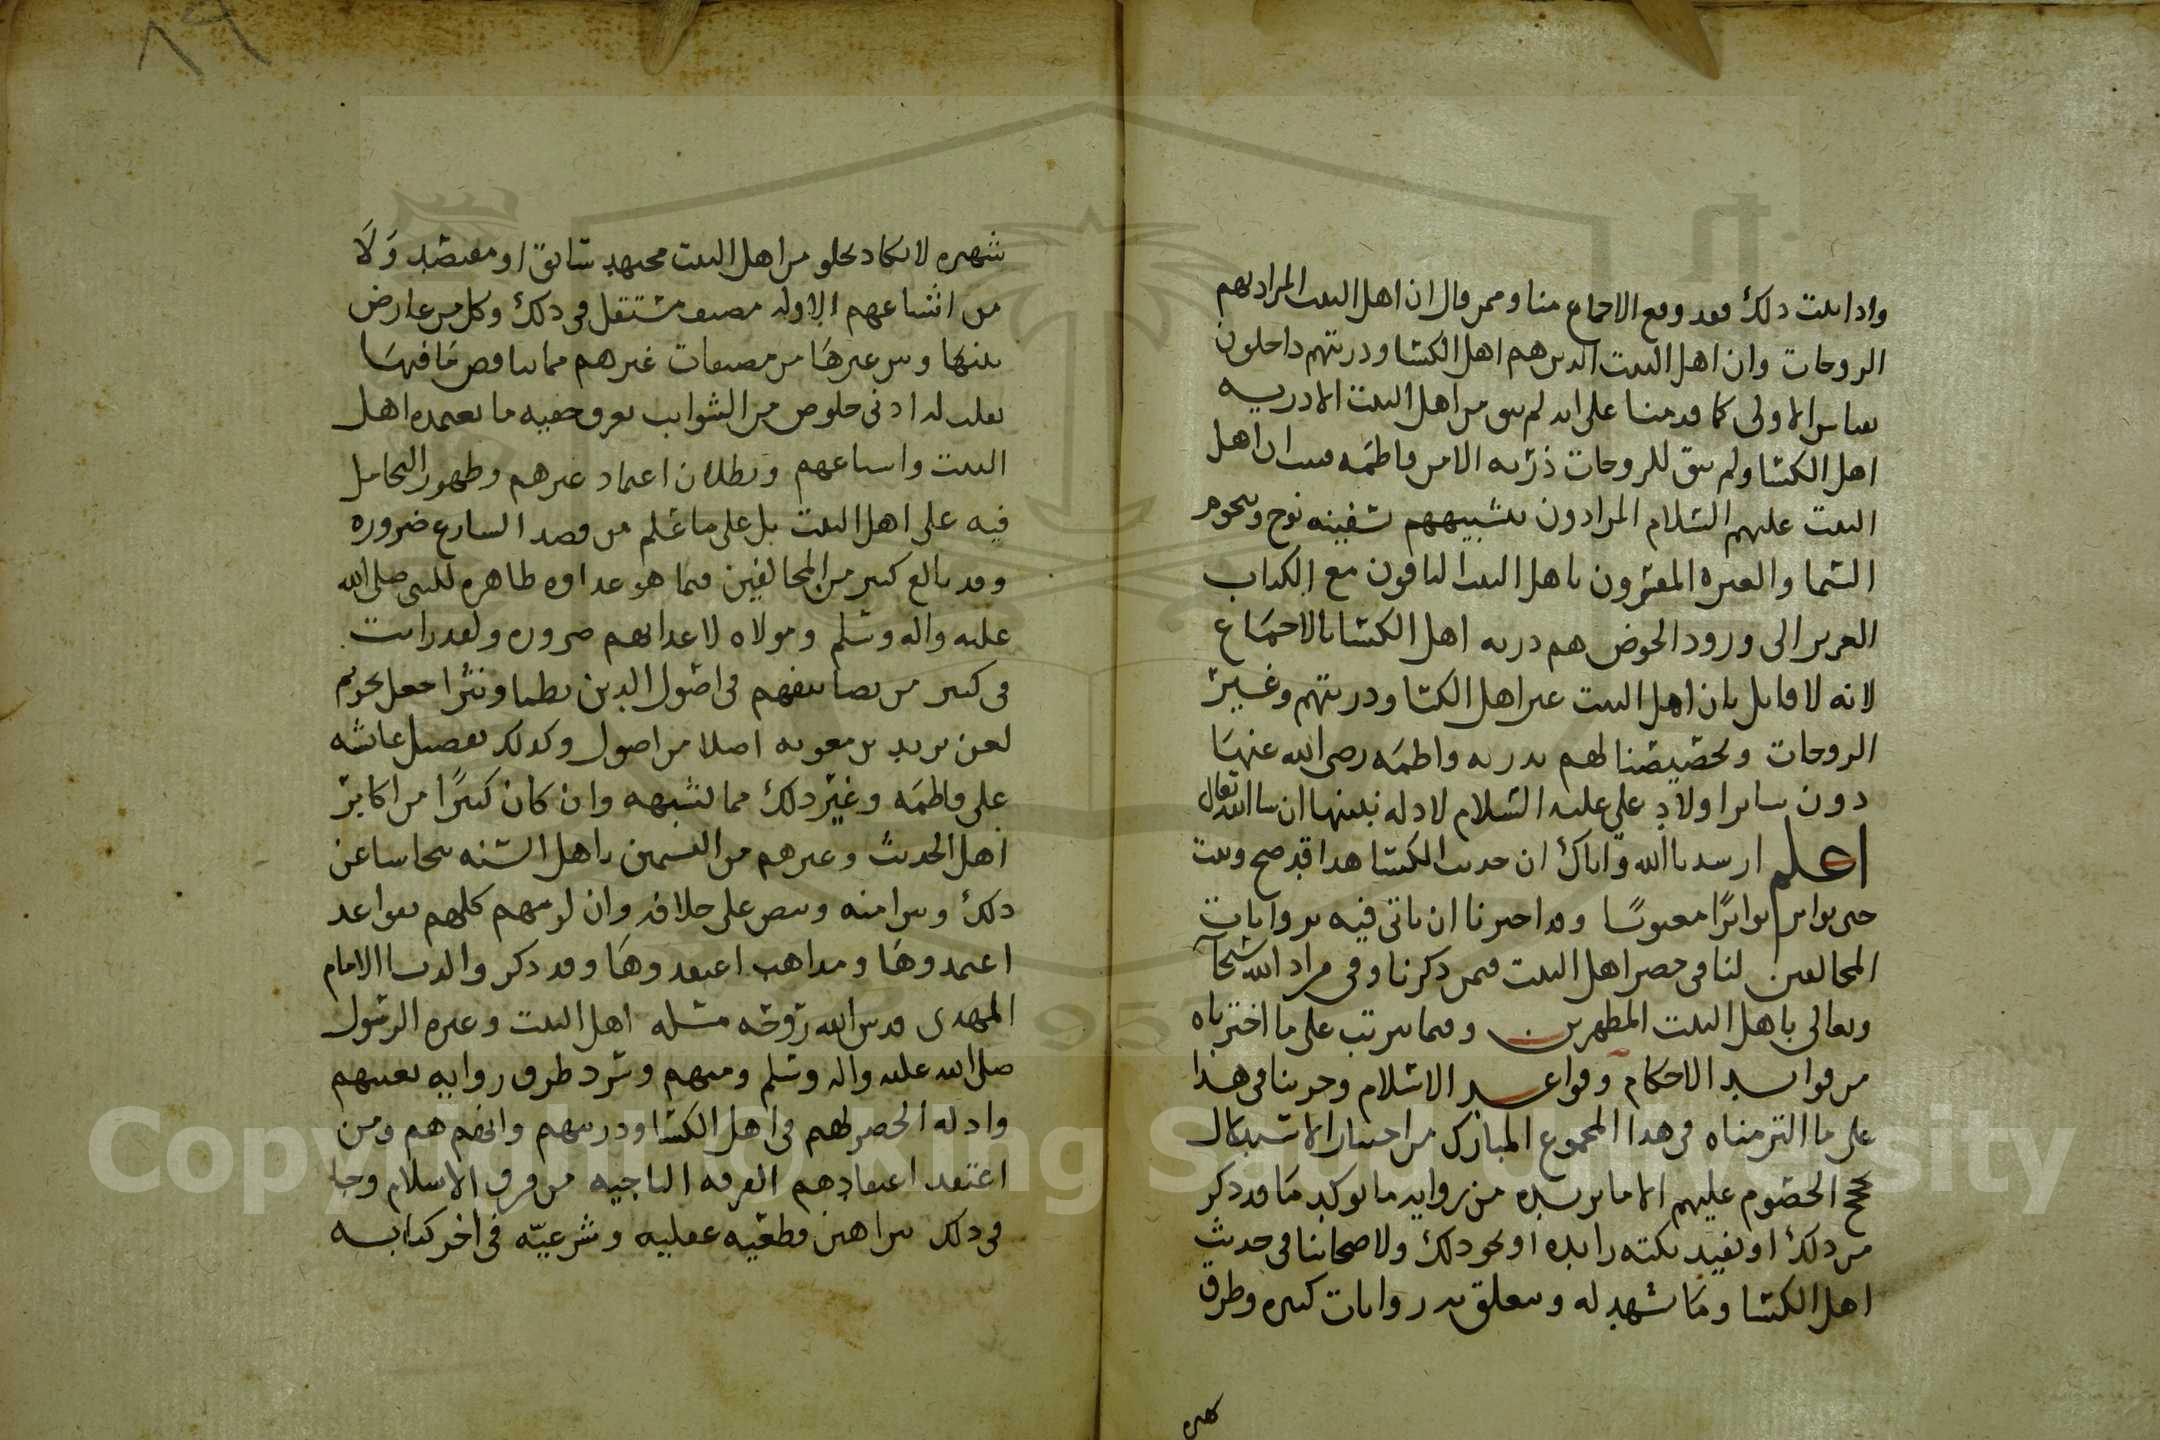 واذا ثبت ذلك فقد وقع الاجماع منا وممن قال ان اهل البيت المراد بهم
الزوجات وان اهل البيت الذين هم اهل الكسا وذريتهم داخلون
بقياس الاولى كما قدمنا على انه لم يبق من اهل البيت الا ذرية
اهل الكسا ولم يبق للزوجات ذرية الا من فاطمة فبيت ان اهل
البيت عليهم السلام المرادون بتشبيههم بسفينة نوح وبنجوم
السما والعترة المقترون باهل البيت الباقون مع الكتاب
العزيز الى ورود الحوض هم ذرية اهل الكسا بالاجماع
لانه لا قايل بان اهل البيت غير اهل الكسا وذريتهم وغير
الزوجات وتخصيصنا لهم بذرية فاطمة رضي الله عنها
دون ساير اولاد علي عليه السلام لادلة نبينها ان شا الله تعالى
اعلم ارشدنا الله واياك ان حديث الكسا هذا قد صح وثبت
حتى تواتر تواترا معنويا وقد اخترنا ان ناتي فيه بروايات
المخالفين لنا في حصر اهل البيت فيمن ذكرنا وفي مراد الله سبحانه
وتعالى باهل البيت المطهرين وفيما يترتب على ما اخترناه
من فوايد الاحكام وقواعد الاسلام وجرينا في هذا
على ما التزمناه في هذا المجموع المبارك من اختيار الاستدلال
بحجج الخصوم عليهم الا ما نريده من رواية ما يوكد ما قد ذكر
من ذلك او يفيد نكتة زايدة او نحو ذلك ولاصحابنا في حديث
اهل الكسا وما يشهد له ويتعلق به روايات كثيرة وطرق
شهيرة لا يكاد يخلو من اهل البيت مجتهد سابق او مقتصد ولا
من اشياعهم الا وله مصنف مستقل في ذلك وكل من عارض
بينها وبين غيرها من مصنفات غيرهم مما يناقض ما فيها
بقلب له ادنى خلوص من الشوايب عرف حقية ما يعتمده اهل
البيت واتباعهم وبطلان اعتماد غيرهم وظهور التحامل
فيه على اهل البيت بل على ما علم من قصد الشارع ضرورة
وقد بالغ كثير من المخالفين فيما هو عداوة ظاهرة للنبي صلى الله
عليه واله وسلم وموالاه لاعدايهم ضرورة ولقد رايت
في كثير من تصانيفهم في اصول الدين نظما ونثرا جعل تحريم
لعن يزيد بن معوية اصلا من اصول وكذلك تفضيل عايشة
على فاطمة وغير ذلك مما يشبهه وان كان كثيرا من اكابر
اهل الحديث وغيرهم من المتسمين باهل السنة يتحاشا عن
ذلك ويبرا منه وينص على خلافه وان لزمهم كلهم بقواعد
اعتمدوها ومذاهب اعتقدوها وقد ذكر والدنا الامام
المهدى قدس الله روحه مسلة اهل البيت وعترة الرسول
صلى الله عليه واله وسلم ومنهم وسرد طرق رواية تعينهم
وادلة الحصر لهم في اهل الكسا وذريتهم وانهم هم ومن
اعتقد اعتقادهم الفرقة الناجية من فرق الاسلام وجا
في ذلك ببراهين قطعية عقلية وشرعية في اخر كتابه